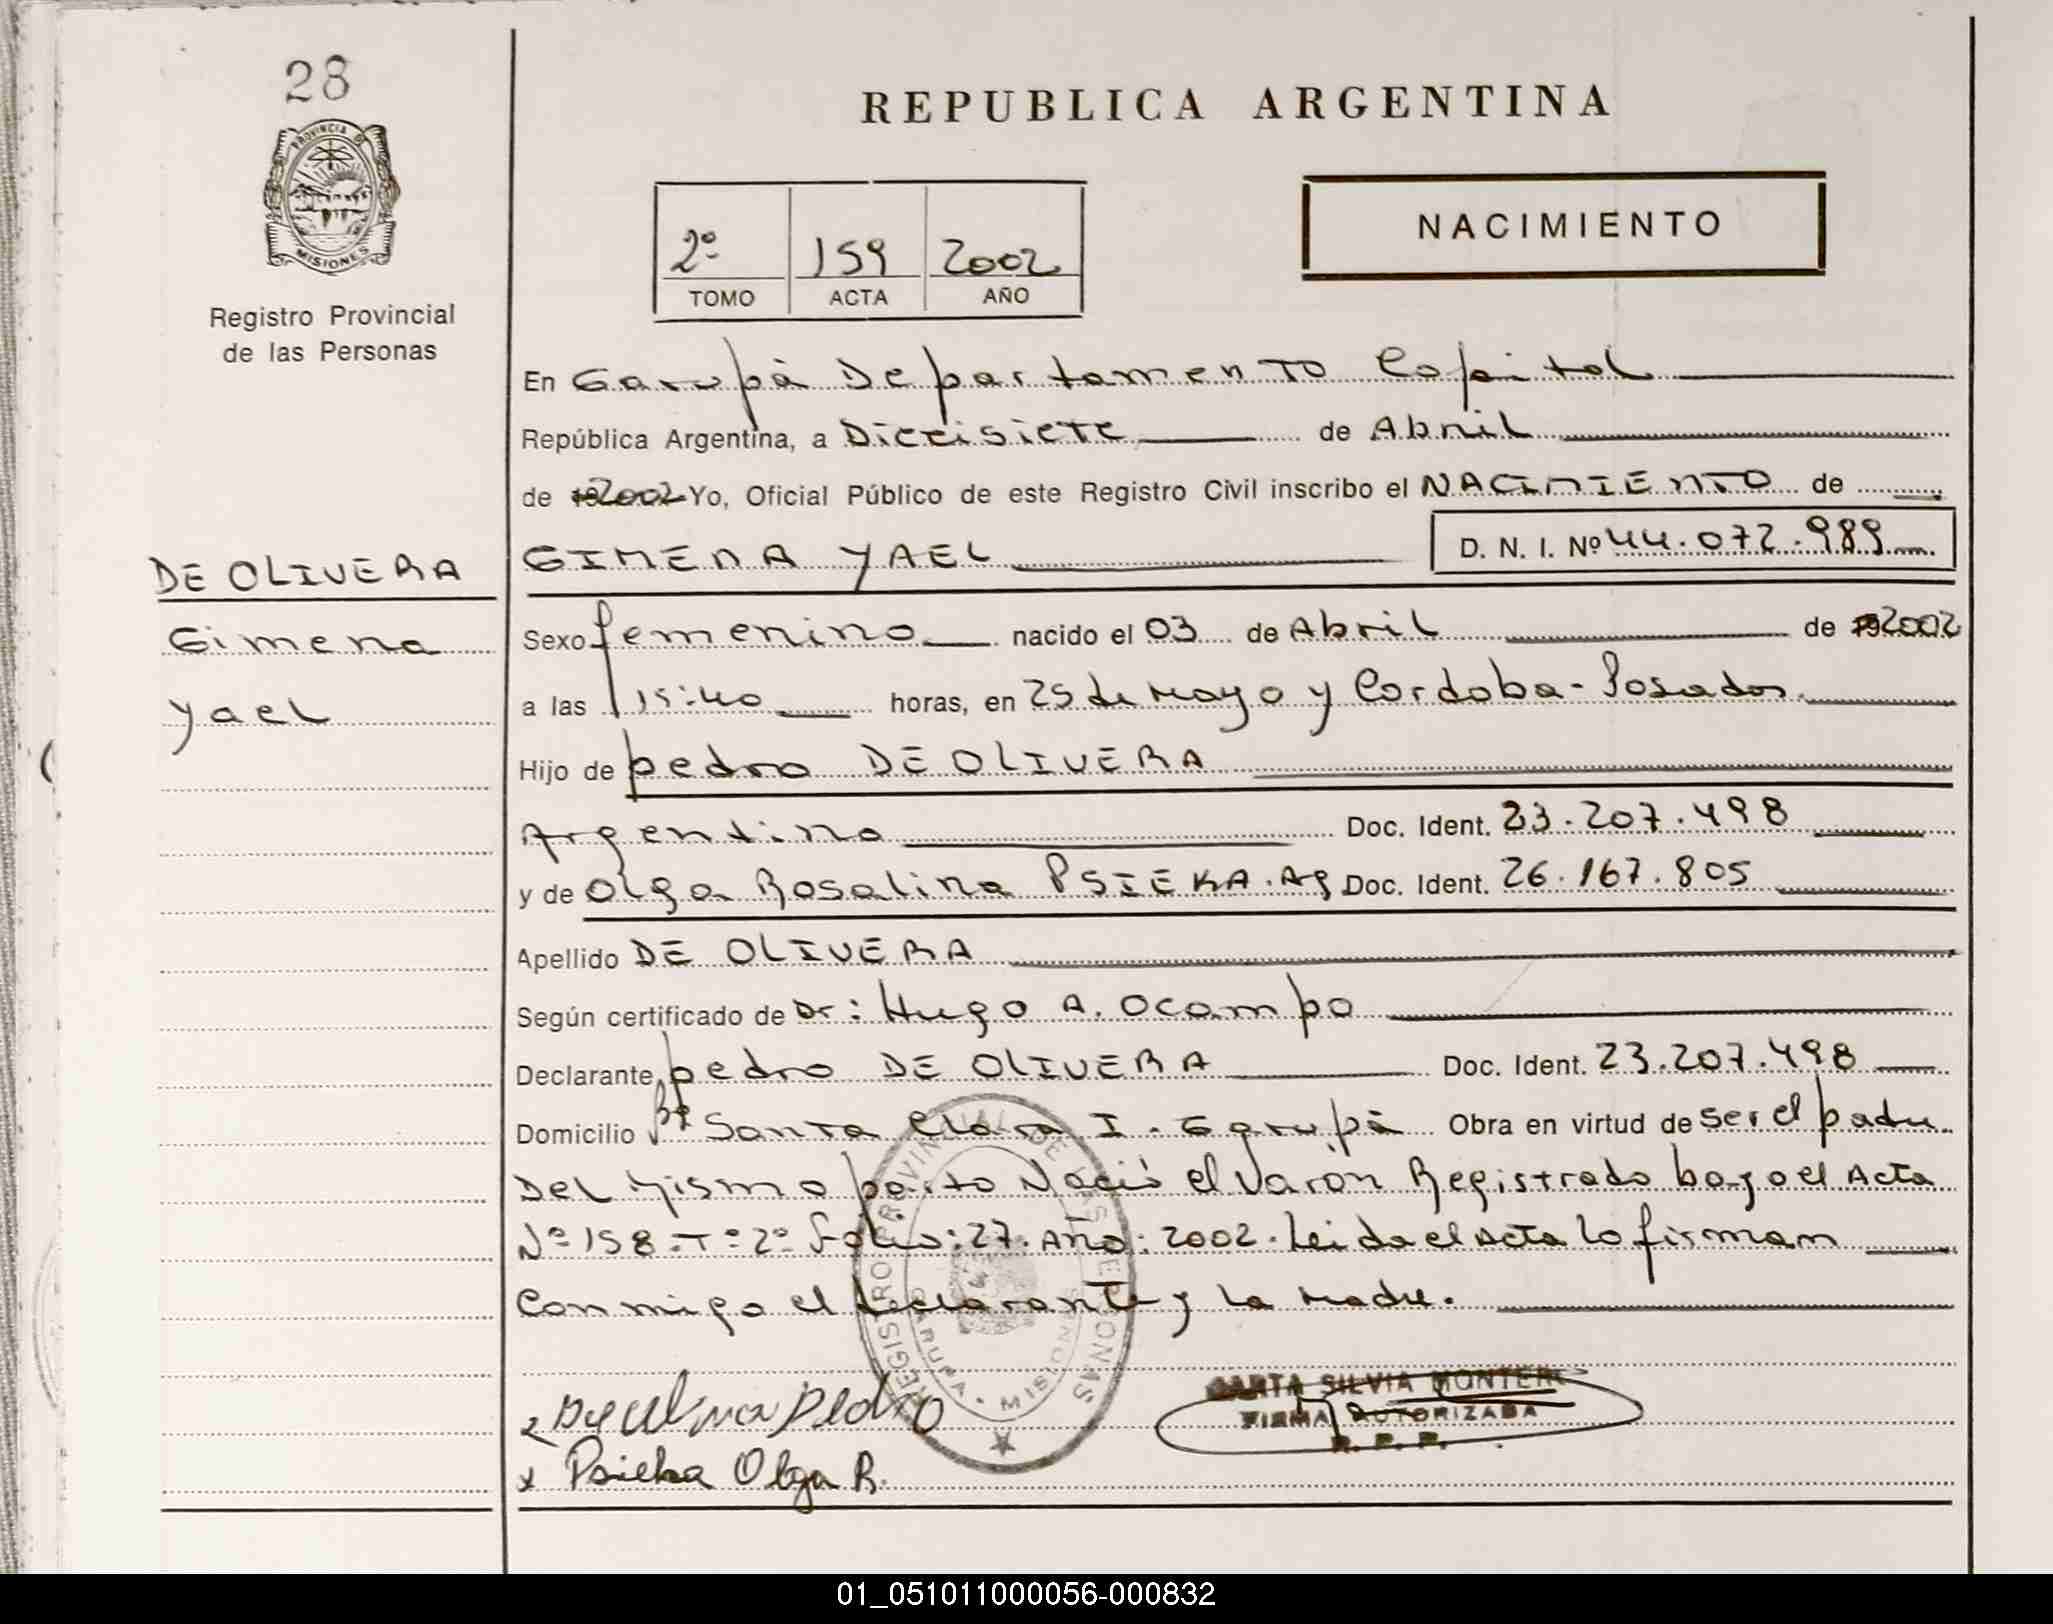 28
PROVINCIA DE
MISIONES
Registro Provincial
de las Personas
DE OLIVERA
Gimena
yael
REPUBLICA ARGENTINA
2º 159 2002
TOMO ACTA AÑO
NACIMIENTO
En Garupá Departamento Capital
República Argentina, a Diecisiete de Abril
de 2002 Yo, Oficial Público de este Registro Civil inscribo el NACIMIENTO de
GIMENA YAEL D. N. I. Nº 44.072.989
Sexo femenino nacido el 03 de Abril de 2002
a las 15:40 horas, en 25 de Mayo y Cordoba - Posadas
Hijo de pedro DE OLIVERA
Argentino Doc. Ident. 23.207.498
y de Olga Rosalina PSIEKA. Arg Doc. Ident. 26.167.805
Apellido DE OLIVERA
Según certificado de Dr: Hugo A. Ocampo
Declarante pedro DE OLIVERA Doc. Ident. 23.207.498
Domicilio Bº Santa Clara I. Garupá Obra en virtud de ser el padre
Del Mismo parto Nació el Varón Registrado bajo el Acta
Nº 158 - Tº 2º Folio: 27. Año: 2002. Leida el Acta lo firman
Conmigo el declarante y la Madre.
REGISTRO PROVINCIAL DE LAS PERSONAS
GARUPA - MISIONES
SILVIA MONTERO
FIRMA AUTORIZADA
R. P. P.
De Olivera Pedro
x Psieka Olga R.
01_051011000056-000832